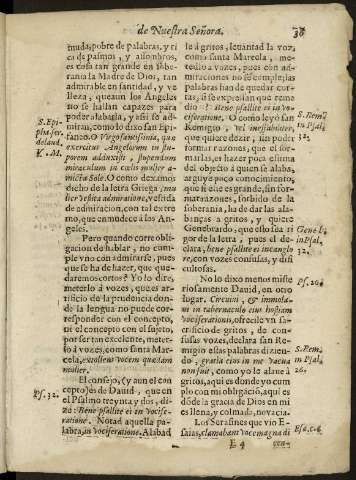 de Nuestra Señora.
36
muda, pobre de palabras, y ri
ca de pasmos, y assombros,
es cosa tan grande en sobe-
rania la Madre de Dios, tan
admirable en santidad, y ve
lleza, que aun los Angeles
no se hallan capazes para
poder alabarla, y assi se ad
miran, como lo dixo san Epi
fanio. O Virgo sanctissima, quæ
exercitus Angelorum in stu-
porem adduxisti, stupendum
miraculum in cœlis mulier a-
micta Sole. O como dexamos
dicho de la letra Griega; mu
lier vestita admiratione, vestida
de admiracion, con tal estre
mo, que enmudece à los An-
geles.
Pero quando corre obli-
gacion de hablar, no cum-
ple vno con admirarse, pues
que se ha de hazer, que que-
daremos cortos? Yo lo dire,
meterlo à vozes, que es ar-
tificio de la prudencia don-
de la lengua no puede cor-
responder con el concepto,
ni el concepto con el sujeto,
por ser tan excelente, meter-
lo à vozes, como santa Mar-
cela, extollens vocem quædam
mulier.
El consejo, (y aun el con
cepto) es de Dauid, que en
el Psalmo treynta y dos, di-
ze: Bene psallite ei in vocife-
ratione. Notad aquella pa-
labra, in vociferatione. Alabad
S. Epi-
pha. ser.
de laud.
V. M.
Ps. 32.
le à gritos, leuantad la voz,
como santa Marcela, me-
tedlo a vozes, pues con ad-
miraciones no se cumple, las
palabras han de quedar cor-
tas, si se expecifian que reme
dio? Bene psallite ei in voci-
feratione. O como leyò san
Remigio,
que quiere dezir, sin poder
formar razones, que el for-
marlas, es hazer poca estima
del objeto à quien se alaba,
arguye poco conocimiento,
que si el le es grande, sin for-
mar razones, forbido de la
soberania, ha de dar las ala-
banças à gritos, y quiere
Genebrardo, que esto sea ri
gor de la letra, pues el de-
clara, bene psallite ei in canglo
re, con vozes confusas, y difi
cultosas.
No lo dixo menos miste
riosamente Dauid, en otro
lugar. Circuiui, & immola-
ui in tabernaculo eius hostiam
vociferationis, ofrecile vn sa-
crificio de gritos, de con-
fusas vozes, declara san Re-
migio ellas palabras dizien-
do, gratia eius in me vacua
non fuit, como yo le alauè à
gritos, aqui es donde yo cum
plo con mi obligaciò, aqui es
dòde la gracia de Dios en mi
es llena, y colmada, no vacia.
Los Serafines que vio E-
saias, clamabant voce magna di
S. Remi
in Psal.
32.
Geneb.
in Psal.
32.
Ps. 26.
S. Remi.
in Psal.
26.
Esa. c. 6.
E 4
cen-